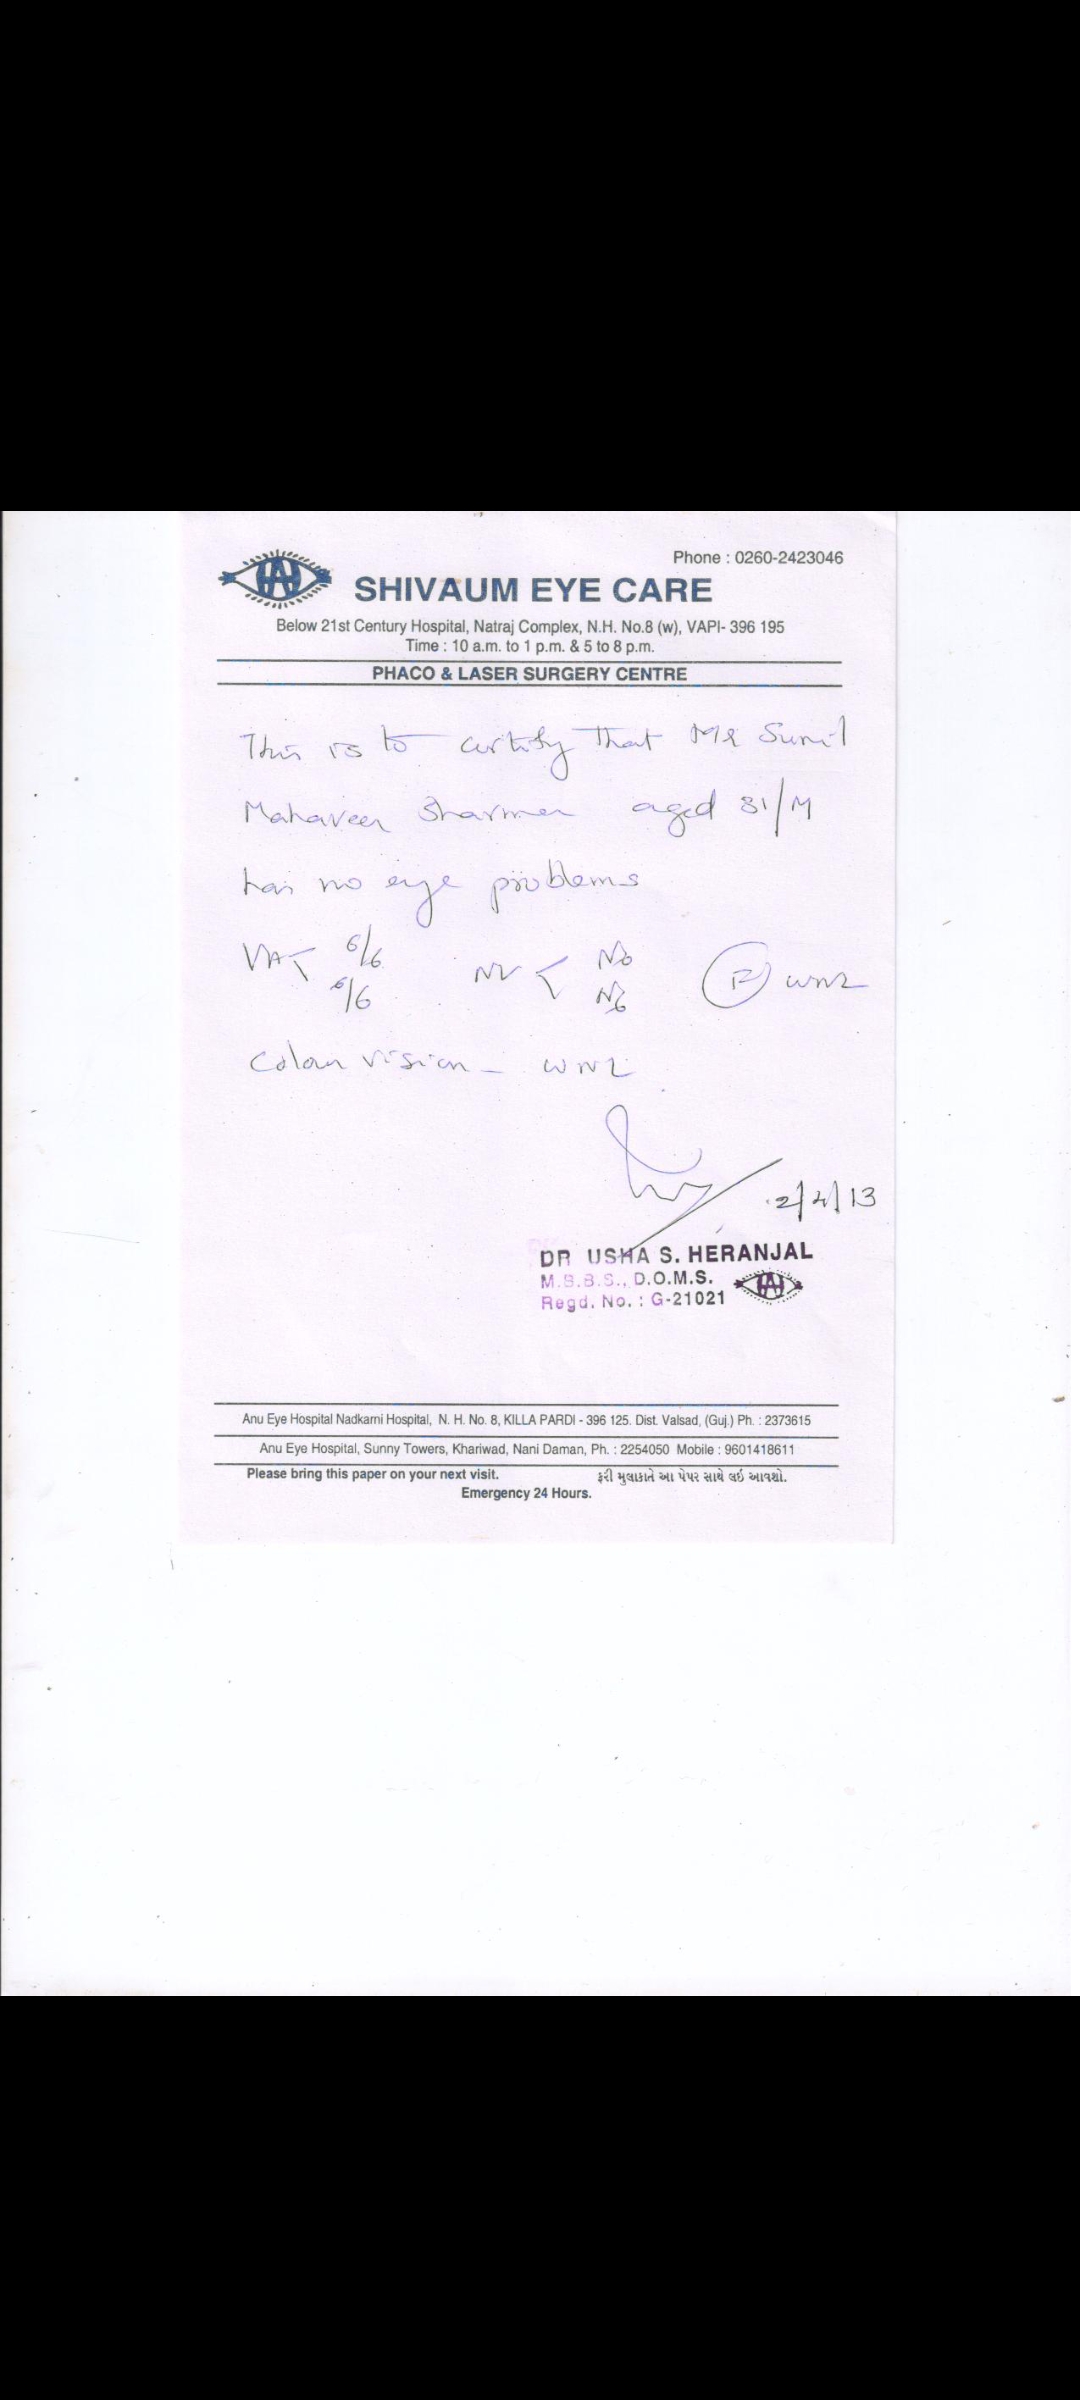 Phone : 0260-2423046
SHIVAUM EYE CARE
Below 21st Century Hospital, Natraj Complex, N.H. No.8 (w), VAPI- 396 195
Time : 10 a.m. to 1 p.m. & 5 to 8 p.m.
PHACO & LASER SURGERY CENTRE
This is to certify that Mr Sunil
Mahaveer Sharma aged 31/M
has no eye problems
VA < 6/6 NV < N6 F WNL
6/6 N6
Colour vision - WNL
2/4/13
DR USHA S. HERANJAL
M.B.B.S., D.O.M.S.
Regd. No. : G-21021
Anu Eye Hospital Nadkarni Hospital, N. H. No. 8, KILLA PARDI - 396 125. Dist. Valsad, (Guj.) Ph. : 2373615
Anu Eye Hospital, Sunny Towers, Khariwad, Nani Daman, Ph. : 2254050 Mobile : 9601418611
Please bring this paper on your next visit. ફરી મુલાકાતે આ પેપર સાથે લઇ આવશો.
Emergency 24 Hours.